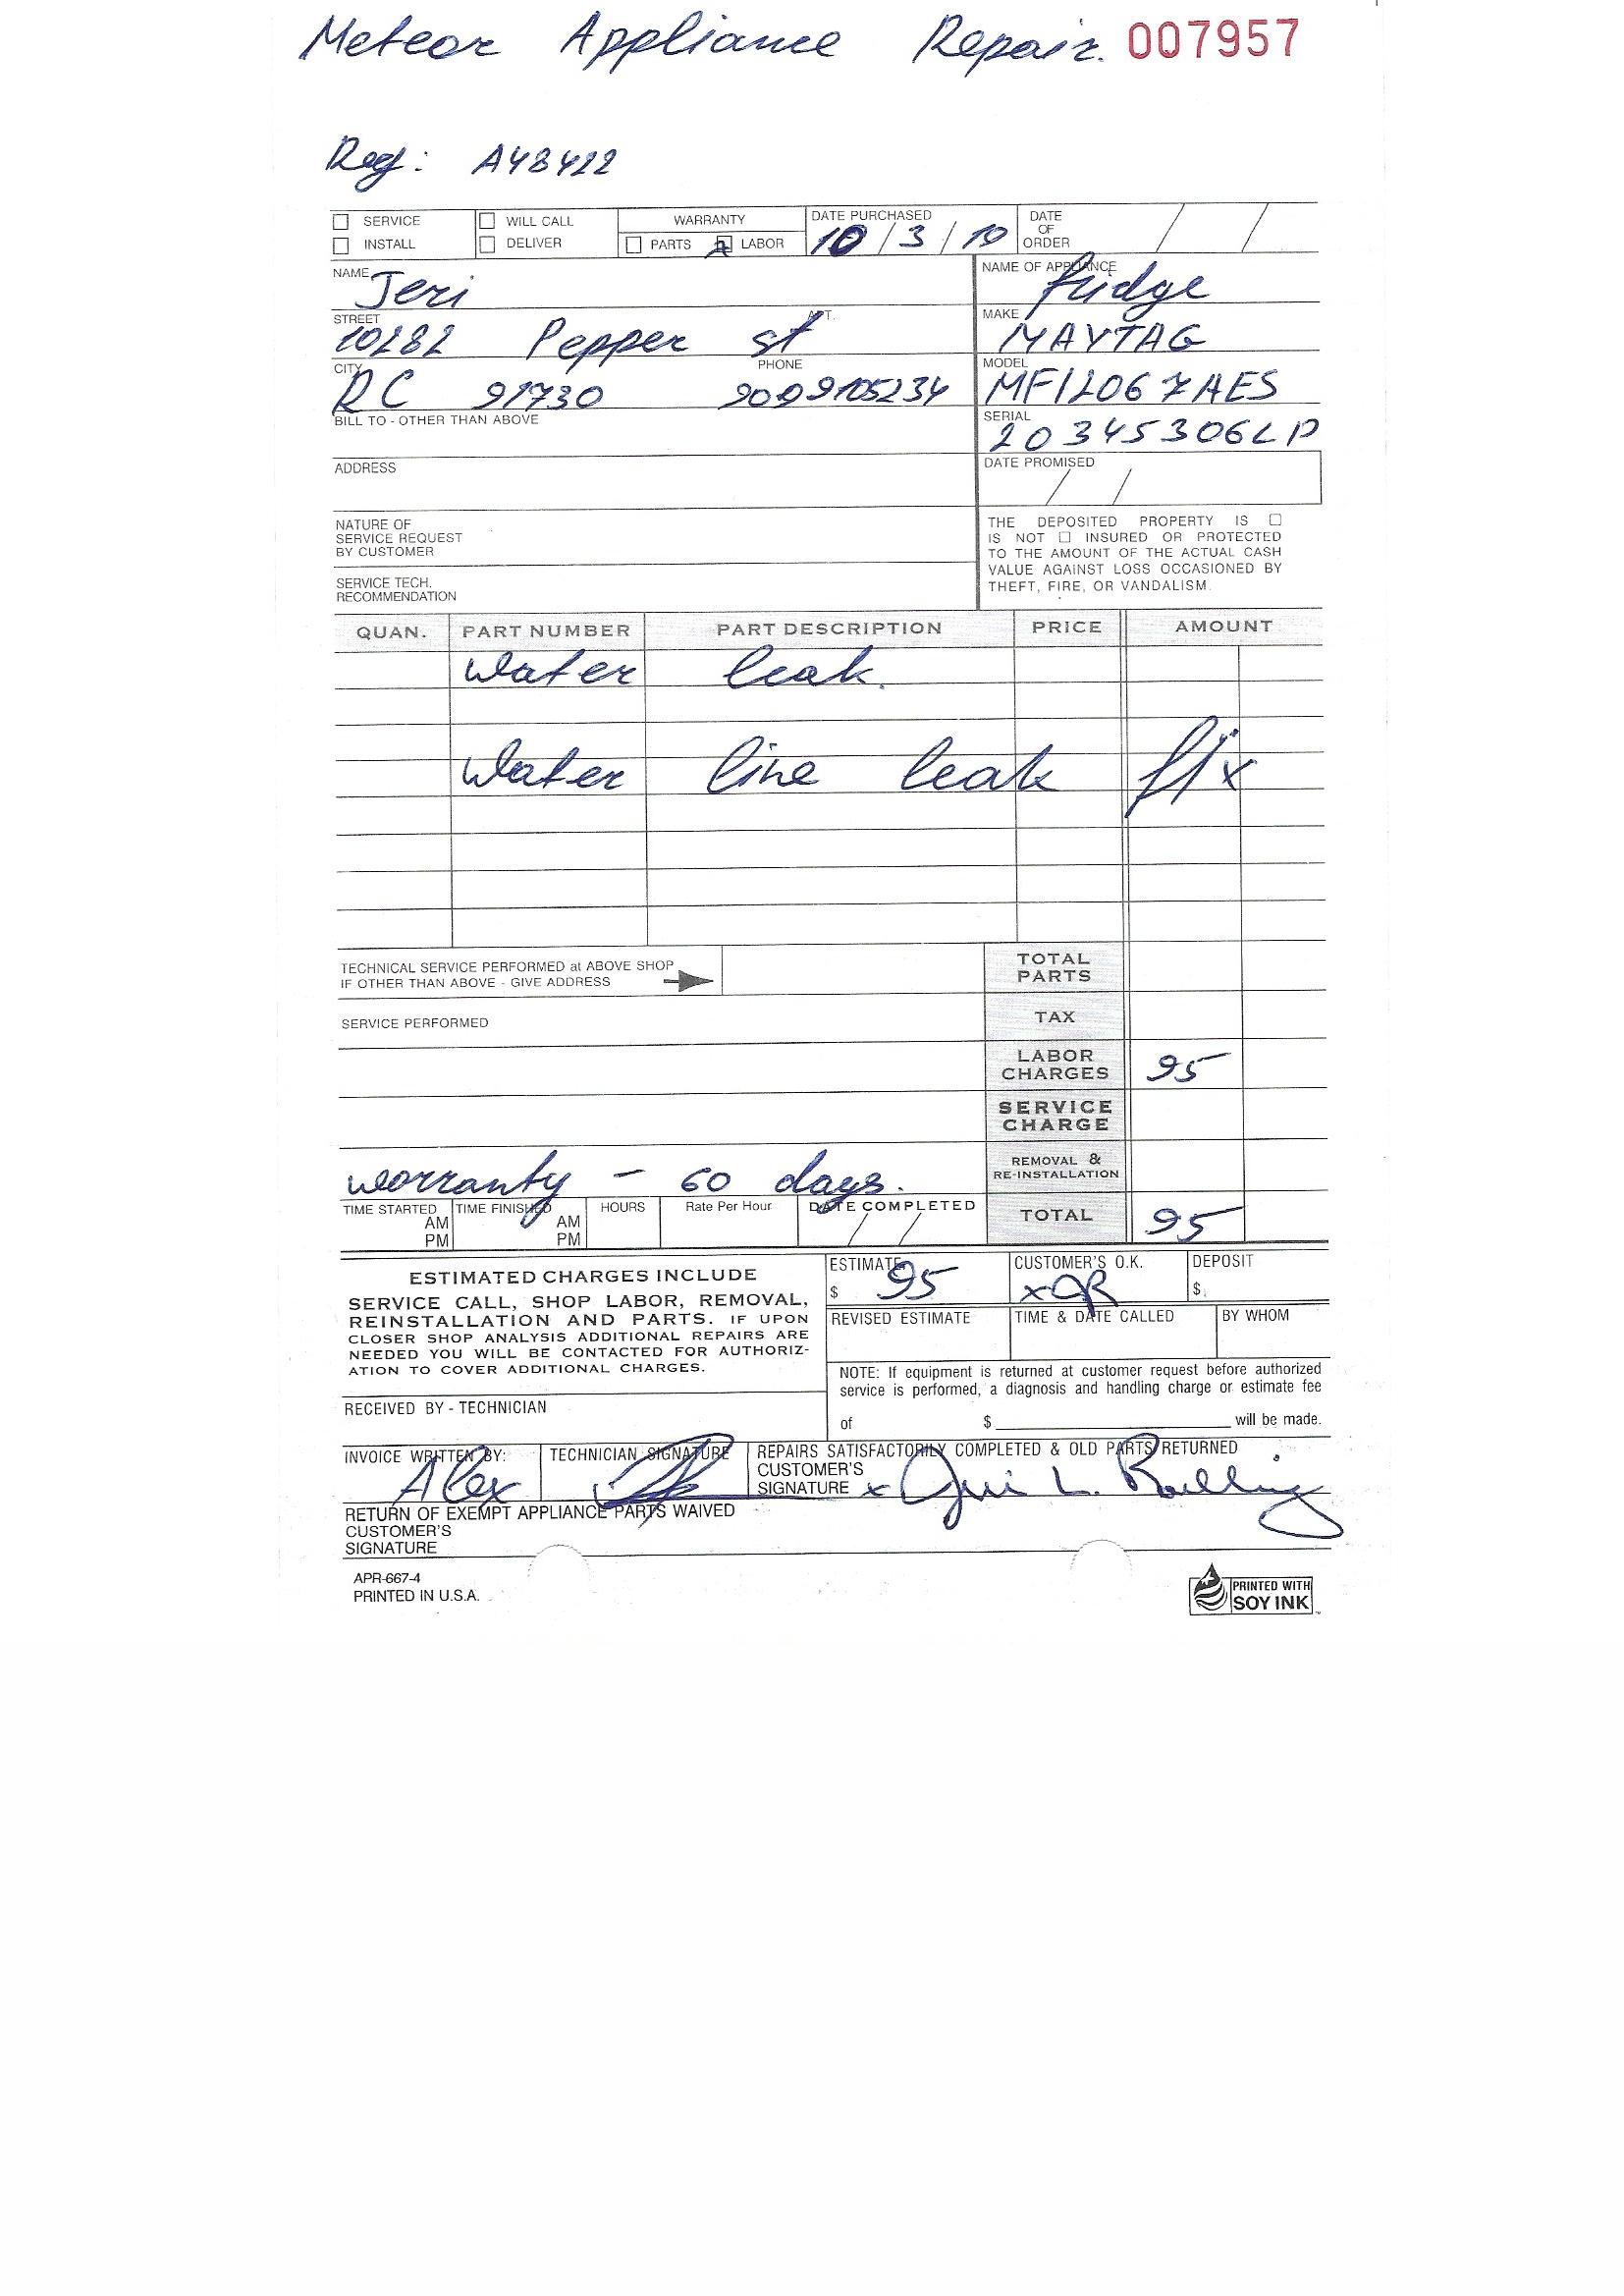 Meteor Appliance Repair. 007957
Reg: A48422
SERVICE WILL CALL WARRANTY DATE PURCHASED DATE OF ORDER
INSTALL DELIVER PARTS LABOR 10/3/10
NAME Jeri NAME OF APPLIANCE fridge
STREET 10282 Pepper st APT. MAKE MAYTAG
CITY RC 91730 PHONE 9099105234 MODEL MFI2067AES
BILL TO - OTHER THAN ABOVE SERIAL 20345306LP
ADDRESS DATE PROMISED / /
NATURE OF
SERVICE REQUEST
BY CUSTOMER
SERVICE TECH.
RECOMMENDATION
THE DEPOSITED PROPERTY IS ☐
IS NOT ☐ INSURED OR PROTECTED
TO THE AMOUNT OF THE ACTUAL CASH
VALUE AGAINST LOSS OCCASIONED BY
THEFT, FIRE, OR VANDALISM.
QUAN. PART NUMBER PART DESCRIPTION PRICE AMOUNT
water leak.
water line leak fix
TECHNICAL SERVICE PERFORMED at ABOVE SHOP
IF OTHER THAN ABOVE - GIVE ADDRESS
TOTAL PARTS
SERVICE PERFORMED
TAX
LABOR CHARGES 95
SERVICE CHARGE
REMOVAL & RE-INSTALLATION
worranty - 60 days.
TIME STARTED AM PM TIME FINISHED AM PM HOURS Rate Per Hour DATE COMPLETED / / TOTAL 95
ESTIMATED CHARGES INCLUDE
SERVICE CALL, SHOP LABOR, REMOVAL,
REINSTALLATION AND PARTS. IF UPON
CLOSER SHOP ANALYSIS ADDITIONAL REPAIRS ARE
NEEDED YOU WILL BE CONTACTED FOR AUTHORIZ-
ATION TO COVER ADDITIONAL CHARGES.
ESTIMATE $ 95 CUSTOMER'S O.K. x JR DEPOSIT $
REVISED ESTIMATE TIME & DATE CALLED BY WHOM
NOTE: If equipment is returned at customer request before authorized
service is performed, a diagnosis and handling charge or estimate fee
of $ will be made.
RECEIVED BY - TECHNICIAN
INVOICE WRITTEN BY: Alex TECHNICIAN SIGNATURE
REPAIRS SATISFACTORILY COMPLETED & OLD PARTS RETURNED
CUSTOMER'S
SIGNATURE x Jeri L.
RETURN OF EXEMPT APPLIANCE PARTS WAIVED
CUSTOMER'S
SIGNATURE
APR-667-4
PRINTED IN U.S.A.
PRINTED WITH
SOY INK